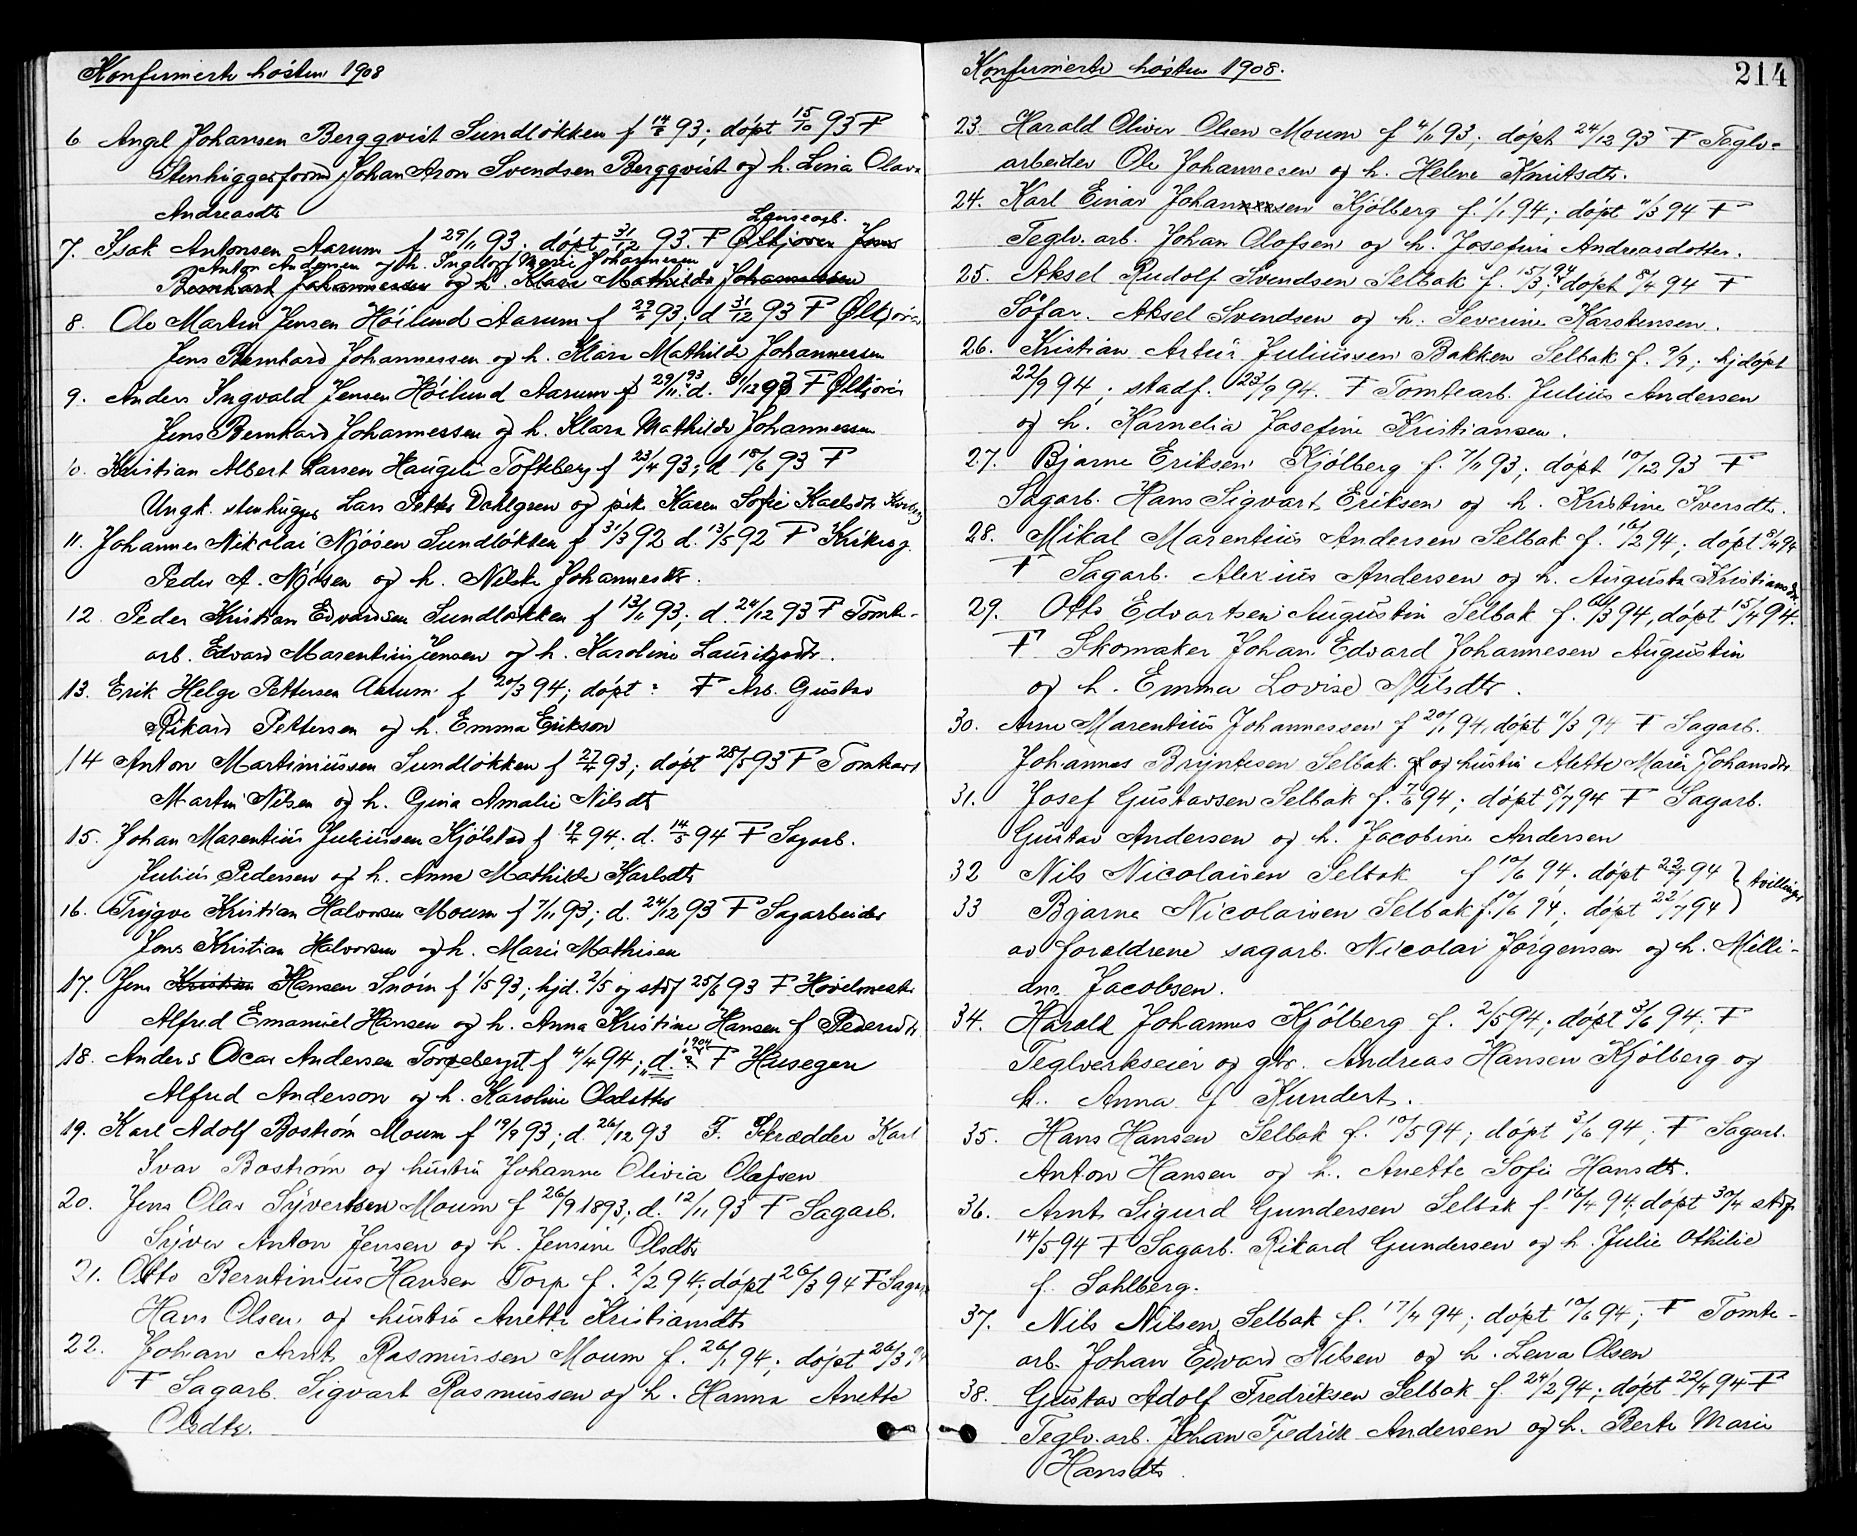 Konfirmerte høsten 1908
6. Angel Johansen Bergqvist Sundløkken f 14/8 93; døpt 15/10 93 F
Stenhuggerform Johan Aron Svendsen Bergqvist og h. Lina Olava
Andreasdtr
Løiseagb.
7. Isak Antonsen Aarum f 29/11 93; døpt 31/12 93. F Ølkjører Jens
Anton Andersen og h. Ingeborg Marie Johannesen
Bernhard Johannessen og h. Klara Mathilde Johannessen
8. Ole Martin Jensen Høilund Aarum f 29/11 93; d 31/12 93 F Ølkjører
Jens Bernhard Johannessen og h. Klara Mathilde Johannessen
9. Anders Ingvald Jensen Høilund Aarum f 29/11 93; d. 31/12 93 F Ølkjører
Jens Bernhard Johannessen og h. Klara Mathilde Johannessen
10. Kristian Albert Larsen Haugen Tofteberg f 23/4 93; d 18/6 93 F
Ungk. stenhugger Lars Petter Dahlgren og pik. Karen Sofie Karlsdtr
11. Johannes Nikolai Njøsen Sundløkken f 31/3 92 d. 13/5 92 F Kirkesg.
Peder A. Njøsen og h. Nelske Johannesdtr.
12. Peder Kristian Edvardsen Sundløkken f 13/11 93; d. 24/12 93 F Tomte-
arb. Edvard Marentius Jensen og h. Karoline Lauritzsdtr.
13. Erik Helge Pettersen Aarum f 20/3 94; døpt ? F Arb. Gustav
Rikard Pettersen og h. Emma Erikson
14 Anton Martiniussen Sundløkken f 27/4 93; døpt 28/5 93 F Tomtearb
Martin Nilsen og h. Gina Amalie Nilsdtr
15. Johan Marentius Juliussen Kjølstad f 19/4 94; d. 14/5 94 F Sagarb.
Julius Pedersen og h. Anne Mathilde Karlsdtr
16. Trygve Kristian Halvorsen Moum f 7/11 93; d. 24/12 93 F Sagarbeider
Jens Kristian Halvorsen og h. Marie Mathisen
17. Jens Kristian Hansen Snørn f 1/5 93; hjd. 2/5 og stdf 25/6 93 F Høvelmester
Alfred Emanuel Hansen og h. Anna Kristine Hansen f Pedersdtr
1904
18. Anders Oscar Andersen Torpeberget f 4/4 94; d. ? F Huseger
Alfred Anderson og h. Karoline Olsdatter
19. Karl Adolf Bostrøm Moum f 19/9 93; d. 26/12 93 F. Skrædder Karl
Ivar Bostrøm og hustru Johanne Olivia Olafsen
20. Jens Olav Syvertsen Moum f 26/9 1893; d. 12/11 93 F Sagarb.
Syver Anton Jensen og h. Jensine Olsdtr
21. Otto Berntinius Hansen Torp f. 2/2 94; døpt 26/3 94 F Sagarb
Hans Olsen og hustru Anette Kristiansdtr
22. Johan Arnt Rasmussen Moum f. 26/1 94; døpt 26/3 94
F Sagarb. Sigvart Rasmussen og h. Hanna Anette
Olsdtr.
Konfirmerte høsten 1908.
214
23. Harald Oliver Olsen Moum f 4/11 93; døpt 24/12 93 F Teglv-
arbeider Ole Johannesen og h. Helene Knutsdtr.
24. Karl Einar Johansen Kjølberg f. 1/1 94; døpt 11/3 94 F
Teglv. arb. Johan Olofsen og h. Josefine Andreasdotter.
25. Aksel Rudolf Svendsen Selbak f. 15/3 94; døpt 8/4 94 F
Søfar. Aksel Svendsen og h. Severine Karstensen.
26. Kristian Artur Juliussen Bakken Selbak f. 9/9; hjdøpt
22/9 94; stadf. 23/9 94. F Tomtearb. Julius Andersen
og h. Karnelia Josefine Kristiansen.
27. Bjarne Eriksen Kjølberg f. 7/11 93; døpt 10/12 93 F
Sagarb. Hans Sigvart Eriksen og h. Kristine Iversdtr.
28. Mikal Marentius Andersen Selbak f. 16/2 94; døpt 8/4 94
F Sagarb. Alexius Andersen og h. Augusta Kristiansdtr
29. Otto Edvartsen Augustin Selbak f. 10/3 94, døpt 15/4 94.
F Skomaker Johan Edvard Johannesen Augustin
og h. Emma Lovise Nilsdtr.
30. Arne Marentius Johannessen f 20/1 94, døpt 11/3 94 F Sagarb.
Johannes Bryntesen Selbak og hustru Alette Maren Johansdtr
31. Josef Gustavsen Selbak f. 7/6 94; døpt 8/7 94 F Sagarb.
Gustav Andersen og h. Jacobine Andersen
32 Nils Nicolaisen Selbak f 10/6 94. døpt 22/7 94 } tvillinger
33 Bjarne Nicolaisen Selbak f. 10/6 94; døpt 22/7 94 }
av foreldrene sagarb. Nicolai Jørgensen og h. Milli-
am Jacobsen.
34. Harald Johannes Kjölberg f. 2/5 94; døpt 3/6 94; F
Teglverkseier og gbr. Andreas Hansen Kjølberg og
h. Anna f Kundert.
35. Hans Hansen Selbak f. 10/5 94; døpt 3/6 94; F Sagarb.
Anton Hansen og h. Anette Sofie Hansdtr.
36. Arnt Sigurd Gundersen Selbak f. 16/4 94; døpt 30/4 stdf
14/5 94 F Sagarb. Rikard Gundersen og h. Julie Othilie
f. Sahlberg.
37. Nils Nilsen Selbak f. 17/4 94; døpt 10/6 94; F Tomte-
arb. Johan Edvard Nilsen og h. Lena Olsen
38. Gustav Adolf Fredriksen Selbak f. 24/2 94; døpt 22/4 94 F
Teglv. arb. Johan Fredrik Andersen og h. Berte Marie
Hansdtr.